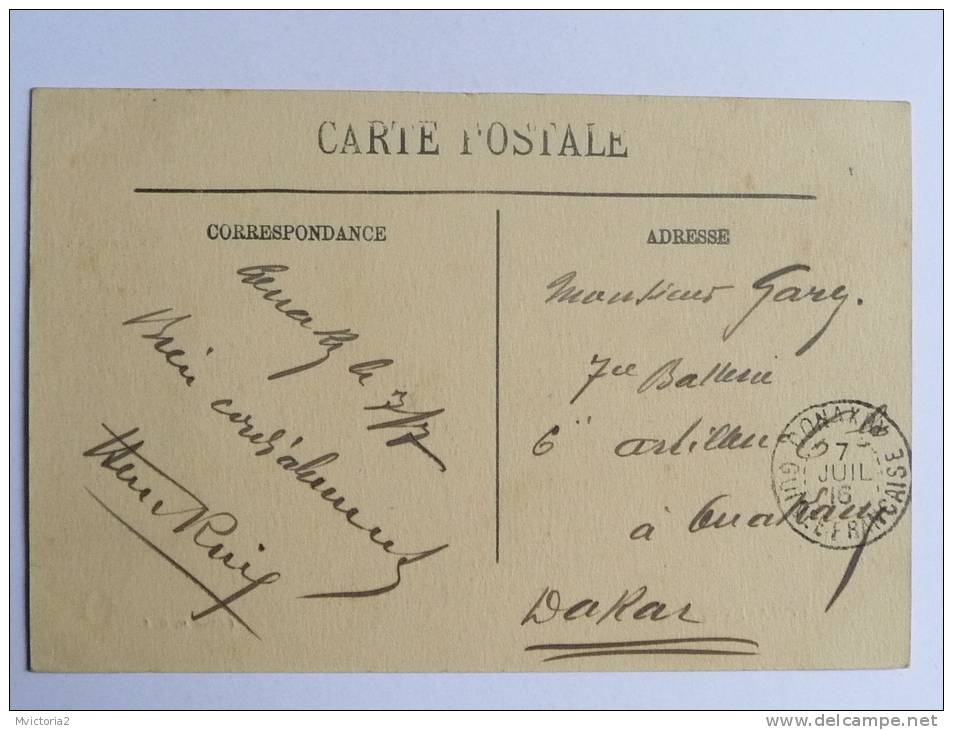 CARTE POSTALE
CORRESPONDANCE
Conakry le 7/7
Bien cordialement
Hen Ruig
ADRESSE
Monsieur Gary.
7e Batterie
6e artillerie
à
Dakar
CONAKRY
7
JUIL
16
GUINÉE FRANÇAISE
Mvictoria2
www.delcampe.net